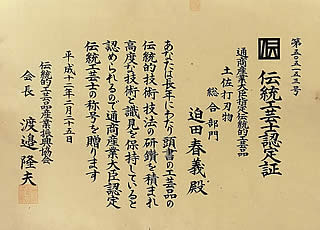 第五〇五五三号
伝
伝統工芸士認定証
通商産業大臣指定伝統的工芸品
土佐打刃物
総合部門
迫田春義殿
あなたは長年にわたり頭書の工芸品の
伝統的技術・技法の研鑽を積まれ
高度な技術と識見を保持していると
認められるので通商産業大臣認定
伝統工芸士の称号を贈ります
平成十二年二月二十五日
伝統的工芸品産業振興協会
会長 渡邉隆夫